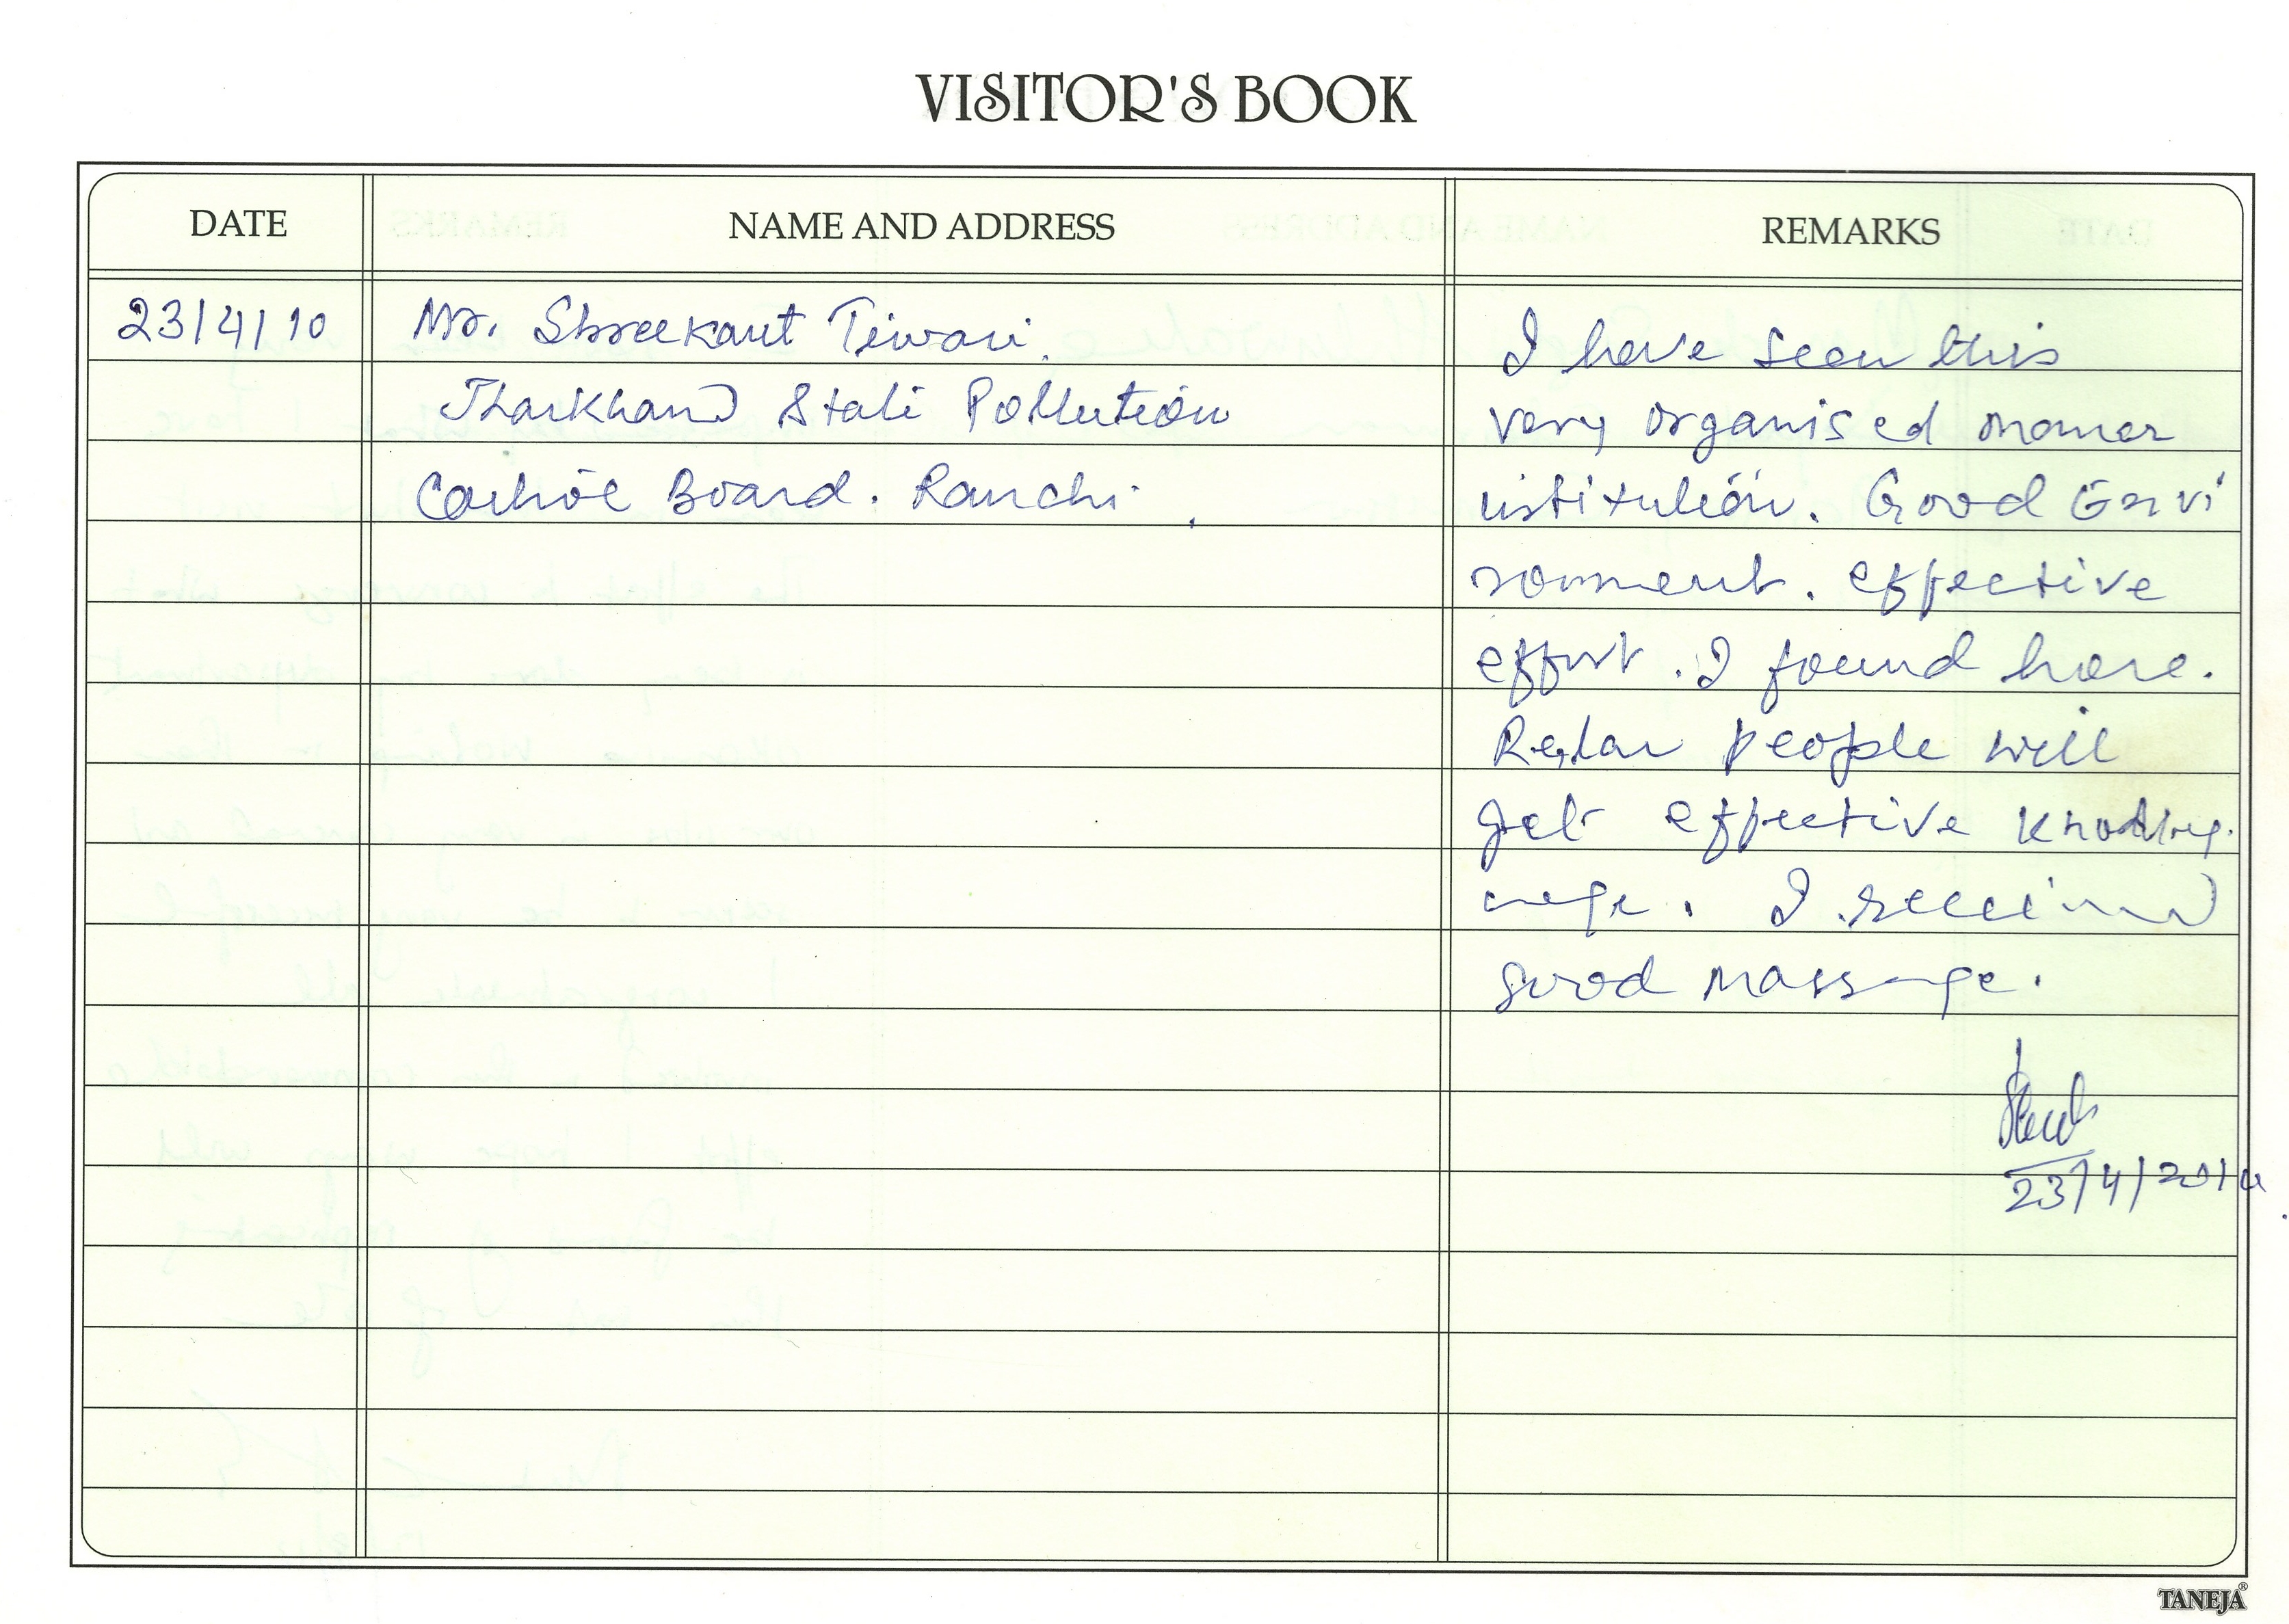 VISITOR'S BOOK
DATE NAME AND ADDRESS REMARKS
23/4/10 Mr. Shreekant Tiwari.
Jharkhand State Pollution
Control Board. Ranchi.
I have seen this
very organised manner
institution. Good Envi
ronment. effective
effort. I found here.
people will
get effective
I received
good massage.
23/4/2010
TANEJA